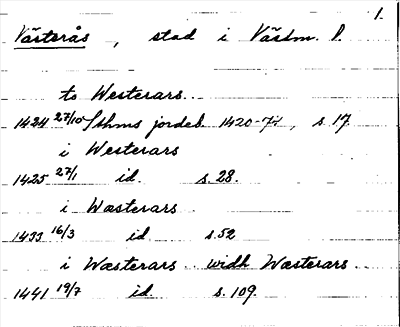 1.
Västerås, stad i Västm. l.
to Westerars
1424 27/10 Sthms jordeb. 1420-74, s. 17.
i Westerars
1425 27/1 id. s. 28.
i Wæsterars
1433 16/3 id s. 52
i Wæsterars widh Wæsterars
1441 19/7 id. s. 109.